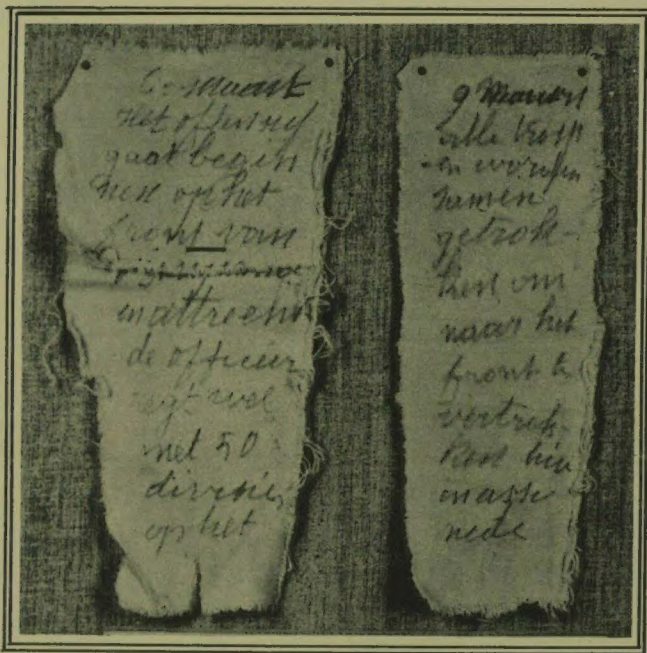 6 maart
Het offensief
gaat begin
nen op het
front van
mattrecht
de officier
zegt wel
met 50
divisies
op het
9 Maart
alle troep
en worden
samen
getrok-
ken om
naar het
front te
vertrek-
ken hier
masse
nede